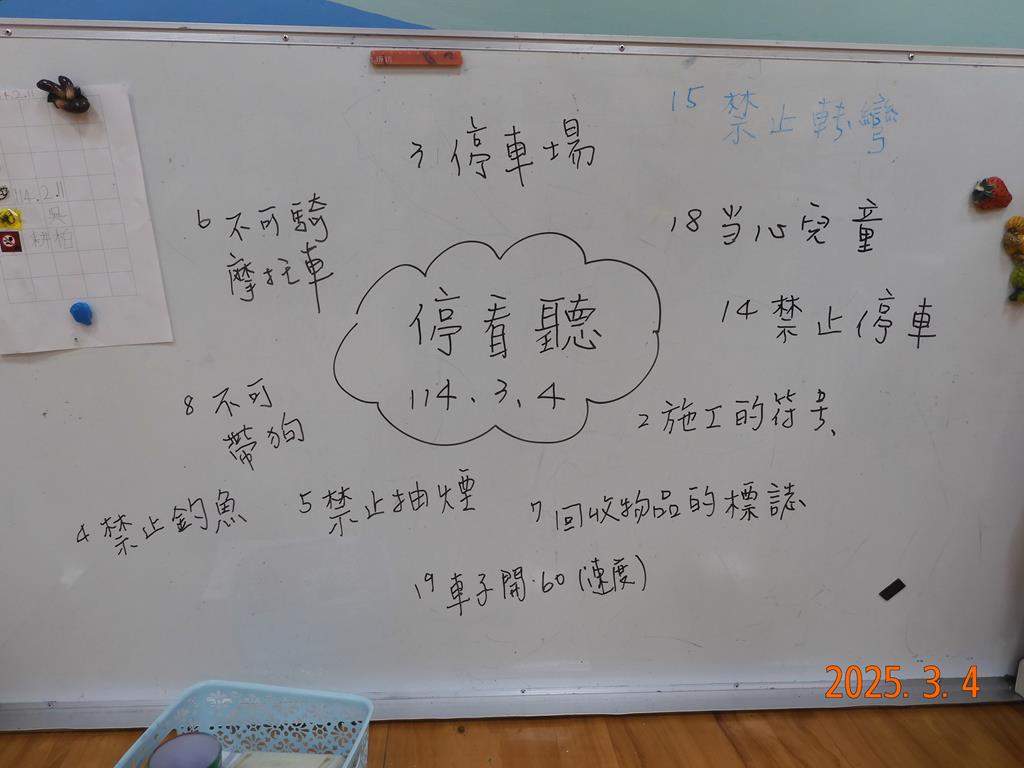 114.2.11
吳
耕柏
15 禁止轉彎
3 停車場
6 不可騎
摩托車
18 当心兒童
停看聽
114、3、4
14 禁止停車
8 不可
帶狗
2 施工的符号、
4 禁止釣魚
5 禁止抽煙
7 回收物品的標誌
19 車子開·60 (速度)
2025. 3. 4